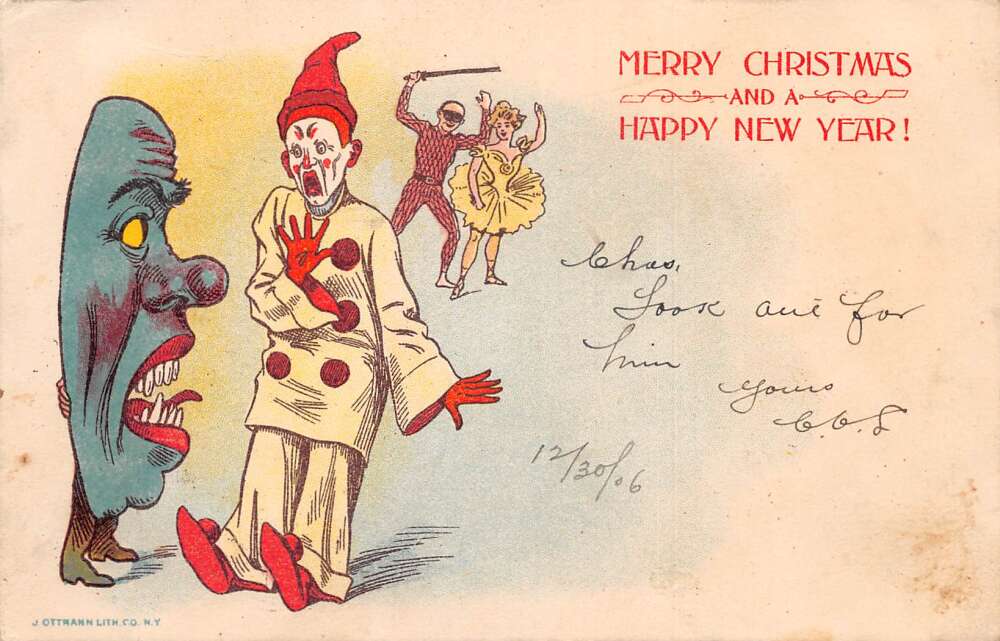 MERRY CHRISTMAS
AND A
HAPPY NEW YEAR!
Chas,
Look out for
him
Yours
C.C.S
12/30/06
J. OTTMANN LITH. CO. N.Y.